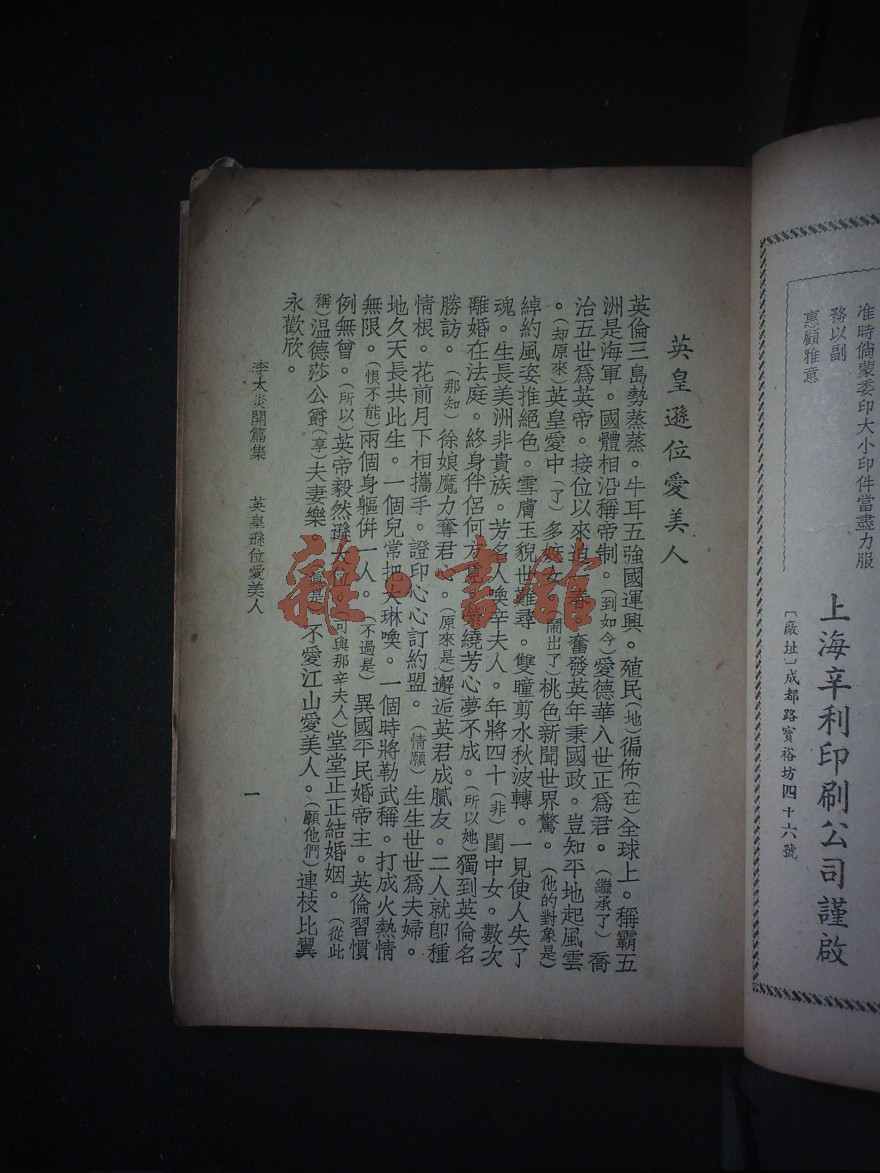 准時倘蒙委印大小印件當盡力服
務以副
惠顧雅意
上海辛利印刷公司謹啟
〔廠址〕成都路寶裕坊四十六號
英皇遜位愛美人
英倫三島勢蒸蒸。牛耳五強國運興。殖民(地)徧佈(在)全球上。稱霸五
洲是海軍。國體相沿稱帝制。(到如今)愛德華八世正爲君。(繼承了)喬
治五世爲英帝。接位以來迫春。奮發英年秉國政。豈知平地起風雲
。(却原來)英皇愛中(了)多女(鬧出了)桃色新聞世界驚。(他的對象是)
綽約風姿推絕色。雪膚玉貌世難尋。雙瞳剪水秋波轉。一見使人失了
魂。生長美洲非貴族。芳名人喚辛夫人。年將四十(非)閨中女。數次
離婚在法庭。終身伴侶何方覓。縈繞芳心夢不成。(所以她)獨到英倫名
勝訪。(那知)徐娘魔力奪君心。(原來是)邂逅英君成膩友。二人就卽種
情根。花前月下相攜手。證印心心訂約盟。(情願)生生世世爲夫婦。
地久天長共此生。一個兒常把大琳喚。一個時將勒武稱。打成火熱情
無限。(恨不能)兩個身軀併一人。(不過是)異國平民婚帝主。英倫習慣
例無曾。(所以)英帝毅然遜大位。(可與那辛夫人)堂堂正正結婚姻。(從此
稱)溫德莎公爵(享)夫妻樂。(眞是)不愛江山愛美人。(願他們)連枝比翼
永歡欣。
李太炎開篇集 英皇遜位愛美人
一
雜·書館